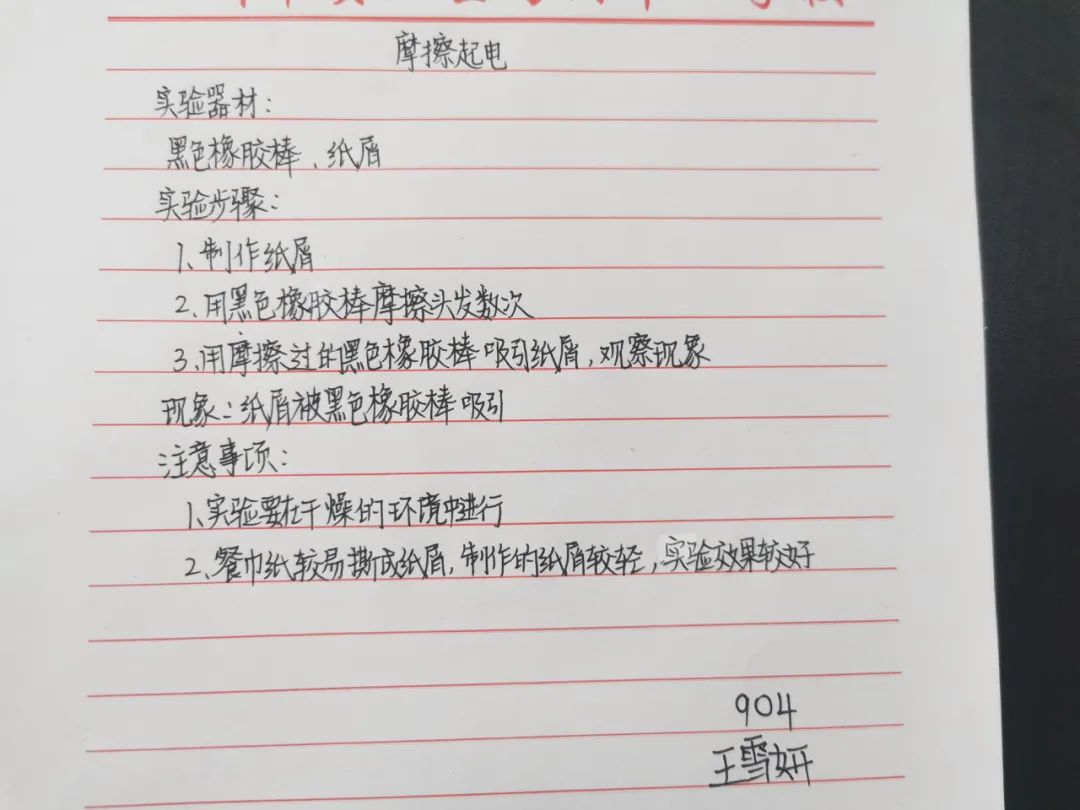 摩擦起电
实验器材:
黑色橡胶棒、纸屑
实验步骤:
1、制作纸屑
2、用黑色橡胶棒摩擦头发数次
3、用摩擦过的黑色橡胶棒吸引纸屑,观察现象
现象:纸屑被黑色橡胶棒吸引
注意事项:
1、实验要在干燥的环境中进行
2、餐巾纸较易撕成纸屑,制作的纸屑较轻,实验效果较好
904
王雪妍